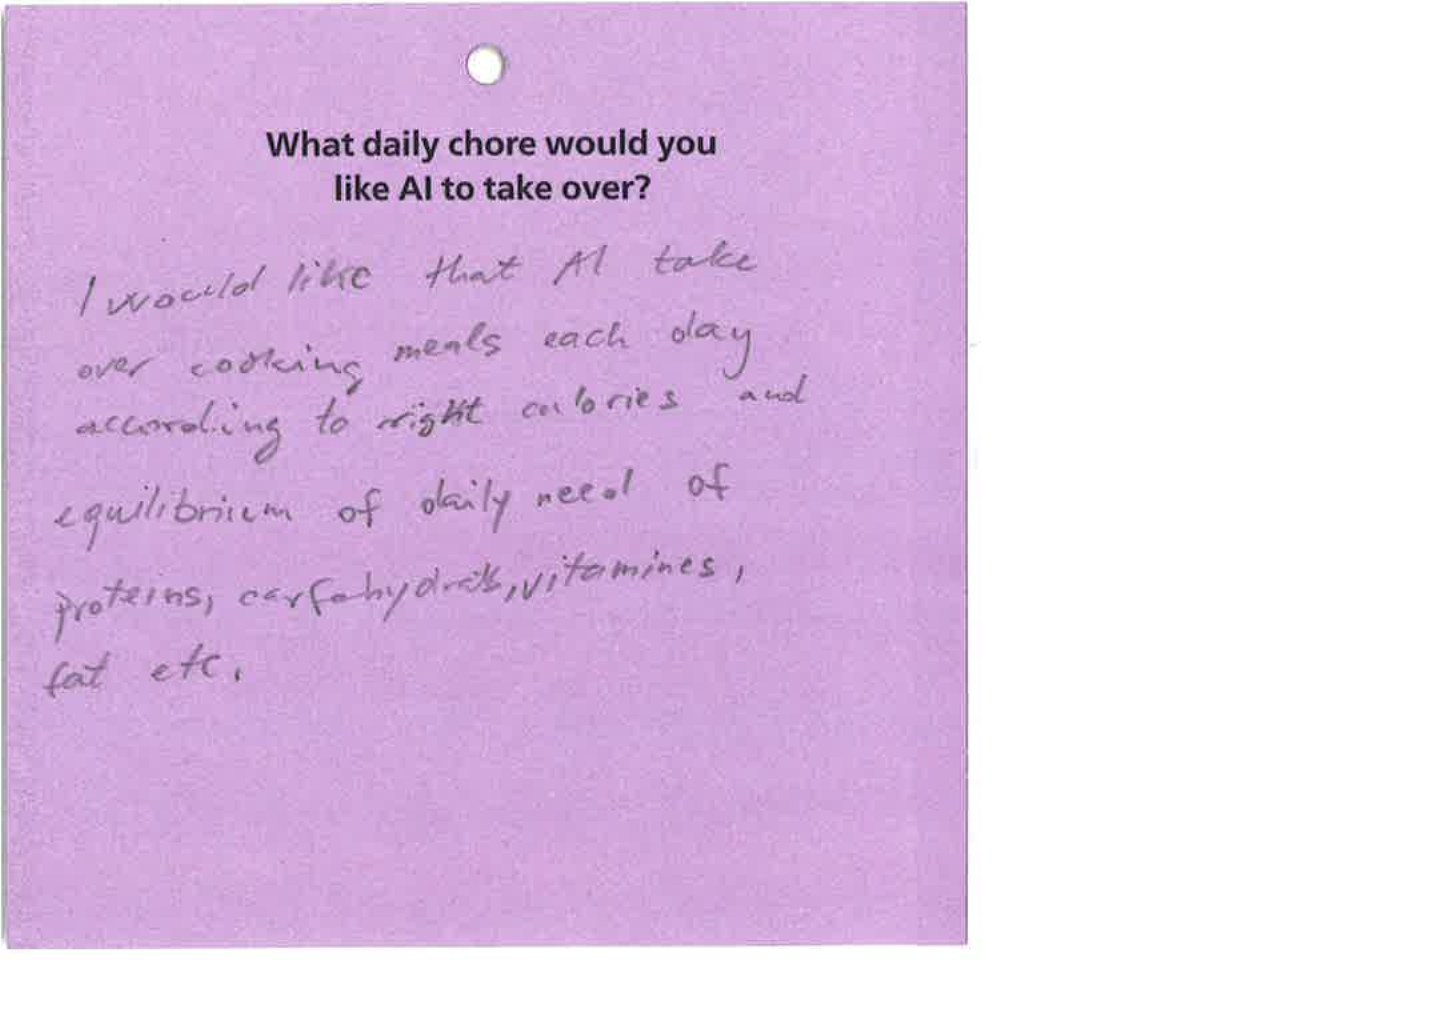 What daily chore would you
like AI to take over?
I would like that AI take
over cooking meals each day
according to right calories and
equilibrium of daily need of
proteins, carfohydrats, vitamines,
fat etc.